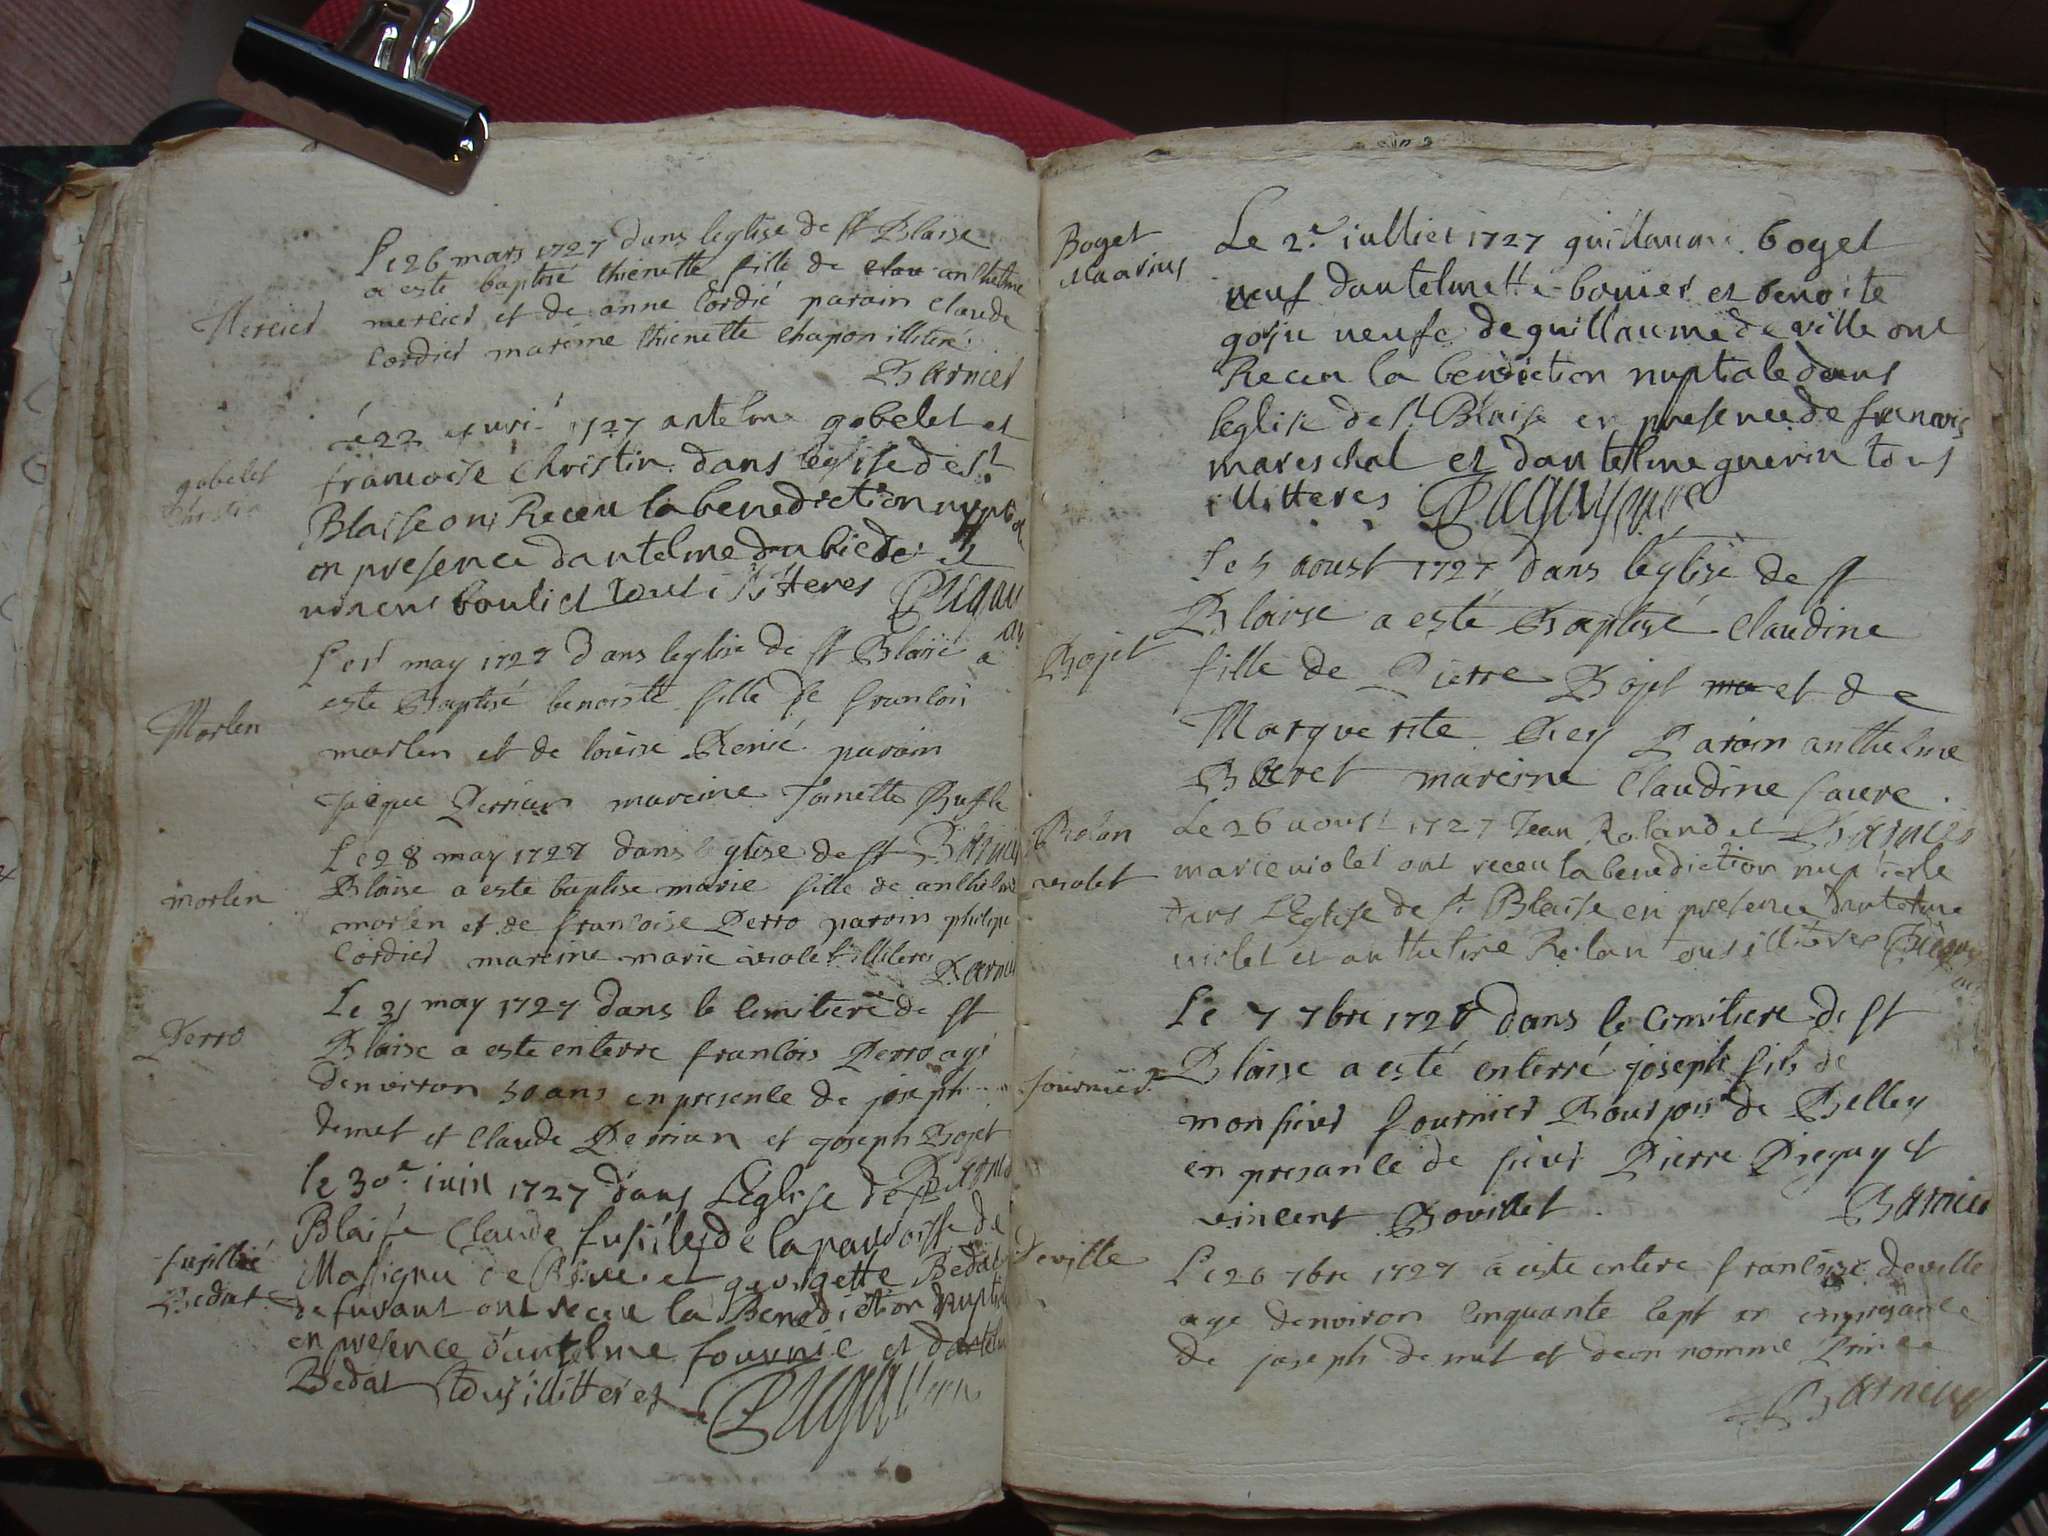 Mercier
Le 26 mars 1727 dans leglise de st Blaise
a este baptisé thienette fille de anthelme
mercier et de anne Cordié parain Claude
Cordier mareine thienette Chapon illiteré
Barnier
gobelet
Christin
22 1727 antelme gobelet et
francoise Christin dans leglise de st
Blaise ont Receu la benediction
en presence dantelme et
boulier tout illitteres
Morlen
Le may 1727 dans leglise de st Blaise a
este Baptisé benoiste fille de francois
morlen et de loüise parain
jaque Perrian mareine
morlen
Le 28 may 1727 dans leglise de st Barnier
Blaise a este baptise marie fille de anthelme
morlen et de francoise Perro parain philipe
Cordier mareine marie violet illiteres
Barnier
Perro
Le 31 may 1727 dans le Cimitiere de st
Blaise a este enterre francois Perro agé
denviron 50 ans en presence de joseph
demet et Claude Perrian et joseph Bojet
Barnier
fusillié
Bedat
le 30e iuin 1727 dans LEglise de st
Blaise Claude fusilier de la parroisse de
Massigneu de Rive et georgette Bedat
ont receu la Benediction Nuptiale
en presence dantelme fournié et dantelme
Bedat tous illitteres
Boget
Le 2e iullier 1727 guillaume boget
veuf dantelmette bouier et benoite
goiju veufe de guillaume de ville ont
Receu la benediction nuptiale dans
leglise de st Blaise en presence de francois
mareschal et dantelme guerin tous
illitteres
Bojet
Le 5 aoust 1727 dans leglise de st
Blaise a esté Baptisé Claudine
fille de Pierre Bojet et de
Marguerite Rey Parain anthelme
mareine Claudine favre
Barnier
Rolan
violet
Le 26 aoust 1727 Jean Roland et
marie violet ont receu la benediction nuptiale
dans LEglise de st Blaise en presence dantelme
violet et anthelme Rolan tous illitéres
fournier
Le 7 7bre 1727 dans le Cimitiere de st
Blaise a esté enterré joseph fils de
monsieur fournier Bourjois de Belley
en presance de sieur Pierre Preguy et
vincent Bouillet
Barnier
Deville
Le 26 7bre 1727 a este entere francoise deville
age denviron Cinquante sept an en presance
de joseph de met et deon nomme Prince
Barnier